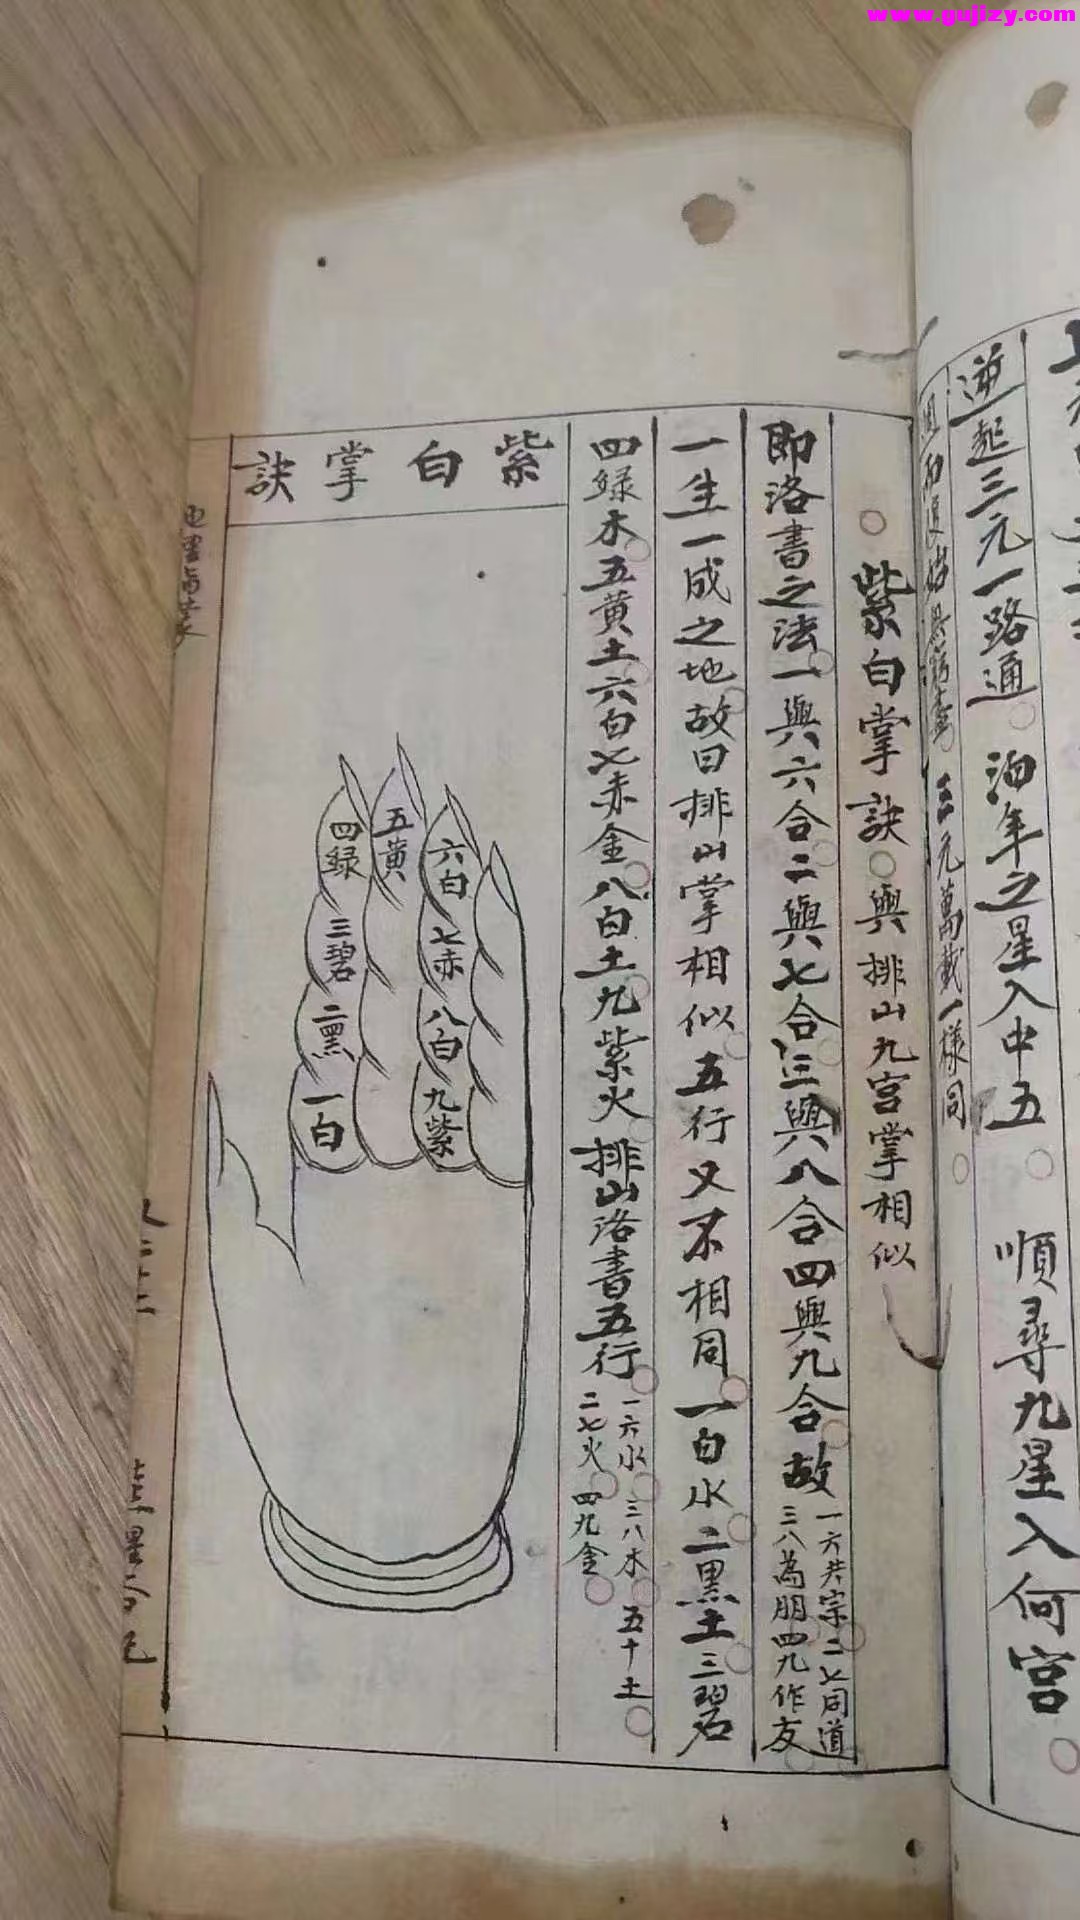 www.gujizy.com
逆起三元一路通 泊年之星入中五 順尋九星入何宮
三元萬載一樣同
紫白掌訣 與排山九宮掌相似
即洛書之法一與六合二與七合三與八合四與九合故
一六共宗二七同道
三八為朋四九作友
一生一成之地故曰排山掌相似五行又不相同一白水二黑土三碧
四绿木五黄土六白七赤金八白土九紫火排山洛書五行
一六水 三八木 五十土
二七火 四九金
紫白掌訣
四绿
五黄
六白
三碧
七赤
二黑
八白
一白
九紫